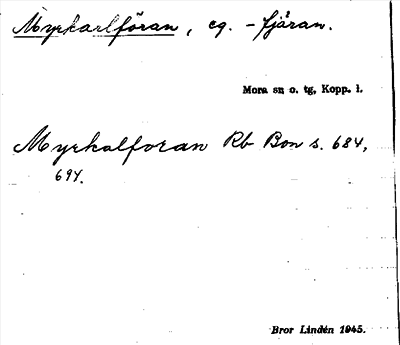 Myrkarlföran, eg. -fjäran.
Mora sn o. tg, Kopp. l.
Myrkalforan Rb Bon s. 684,
694.
Bror Lindén 1945.